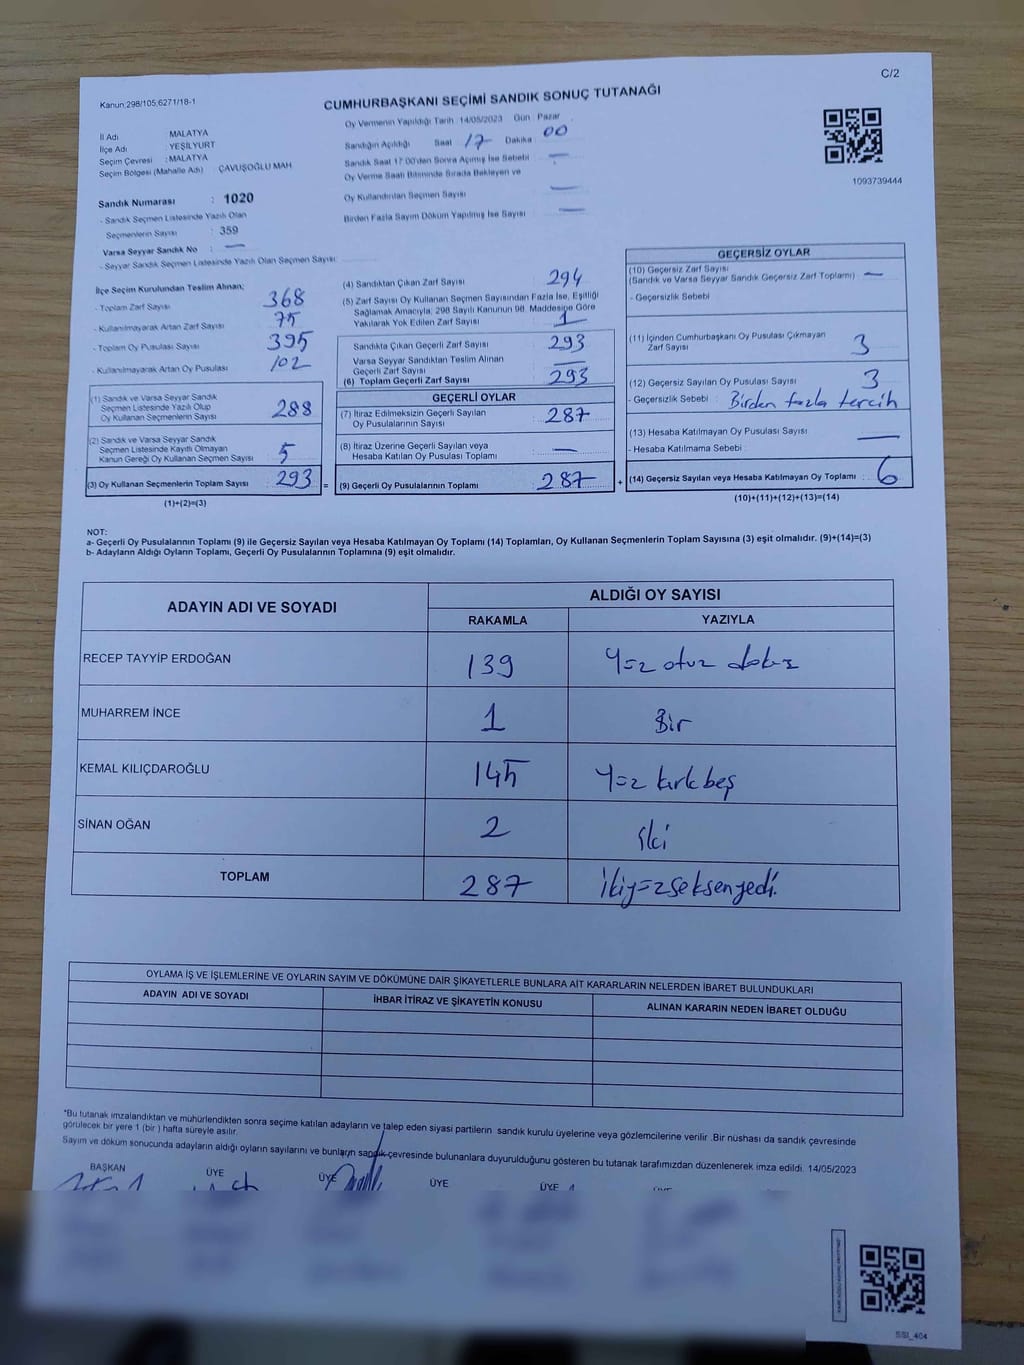 C/2
Kanun;298/105;6271/18-1
CUMHURBAŞKANI SEÇİMİ SANDIK SONUÇ TUTANAĞI
Oy Vermenin Yapıldığı Tarih :14/05/2023 Gün Pazar
İl Adı MALATYA
İlçe Adı YEŞİLYURT
Seçim Çevresi : MALATYA
Seçim Bölgesi (Mahalle Adı) ÇAVUŞOĞLU MAH
Sandığın Açıldığı Saat 17 Dakika 00
Sandık Saat 17:00'den Sonra Açılmış İse Sebebi : —
Oy Verme Saati Bitiminde Sırada Bekleyen ve
Oy Kullandırılan Seçmen Sayısı : —
Birden Fazla Sayım Döküm Yapılmış İse Sayısı : —
1093739444
Sandık Numarası : 1020
- Sandık Seçmen Listesinde Yazılı Olan
Seçmenlerin Sayısı : 359
Varsa Seyyar Sandık No : —
- Seyyar Sandık Seçmen Listesinde Yazılı Olan Seçmen Sayısı:
İlçe Seçim Kurulundan Teslim Alınan;
- Toplam Zarf Sayısı 368
- Kullanılmayarak Artan Zarf Sayısı 75
- Toplam Oy Pusulası Sayısı 395
- Kullanılmayarak Artan Oy Pusulası 102
(1) Sandık ve Varsa Seyyar Sandık
Seçmen Listesinde Yazılı Olup
Oy Kullanan Seçmenlerin Sayısı : 288
(2) Sandık ve Varsa Seyyar Sandık
Seçmen Listesinde Kayıtlı Olmayan
Kanun Gereği Oy Kullanan Seçmen Sayısı : 5
(3) Oy Kullanan Seçmenlerin Toplam Sayısı : 293 =
(1)+(2)=(3)
(4) Sandıktan Çıkan Zarf Sayısı : 294
(5) Zarf Sayısı Oy Kullanan Seçmen Sayısından Fazla İse, Eşitliği
Sağlamak Amacıyla, 298 Sayılı Kanunun 98. Maddesine Göre
Yakılarak Yok Edilen Zarf Sayısı : 1
Sandıkta Çıkan Geçerli Zarf Sayısı : 293
Varsa Seyyar Sandıktan Teslim Alınan
Geçerli Zarf Sayısı : —
(6) Toplam Geçerli Zarf Sayısı : 293
GEÇERLİ OYLAR
(7) İtiraz Edilmeksizin Geçerli Sayılan
Oy Pusulalarının Sayısı : 287
(8) İtiraz Üzerine Geçerli Sayılan veya
Hesaba Katılan Oy Pusulası Toplamı : —
(9) Geçerli Oy Pusulalarının Toplamı : 287 +
GEÇERSİZ OYLAR
(10) Geçersiz Zarf Sayısı
(Sandık ve Varsa Seyyar Sandık Geçersiz Zarf Toplamı) : —
- Geçersizlik Sebebi :
(11) İçinden Cumhurbaşkanı Oy Pusulası Çıkmayan
Zarf Sayısı : 3
(12) Geçersiz Sayılan Oy Pusulası Sayısı : 3
- Geçersizlik Sebebi : Birden fazla tercih
(13) Hesaba Katılmayan Oy Pusulası Sayısı : —
- Hesaba Katılmama Sebebi :
(14) Geçersiz Sayılan veya Hesaba Katılmayan Oy Toplamı : 6
(10)+(11)+(12)+(13)=(14)
NOT:
a- Geçerli Oy Pusulalarının Toplamı (9) ile Geçersiz Sayılan veya Hesaba Katılmayan Oy Toplamı (14) Toplamları, Oy Kullanan Seçmenlerin Toplam Sayısına (3) eşit olmalıdır. (9)+(14)=(3)
b- Adayların Aldığı Oyların Toplamı, Geçerli Oy Pusulalarının Toplamına (9) eşit olmalıdır.
ADAYIN ADI VE SOYADI
ALDIĞI OY SAYISI
RAKAMLA YAZIYLA
RECEP TAYYİP ERDOĞAN 139 Yüz otuz dokuz
MUHARREM İNCE 1 Bir
KEMAL KILIÇDAROĞLU 145 Yüz kırk beş
SİNAN OĞAN 2 iki
TOPLAM 287 ikiyüzseksenyedi
OYLAMA İŞ VE İŞLEMLERİNE VE OYLARIN SAYIM VE DÖKÜMÜNE DAİR ŞİKAYETLERLE BUNLARA AİT KARARLARIN NELERDEN İBARET BULUNDUKLARI
ADAYIN ADI VE SOYADI İHBAR İTİRAZ VE ŞİKAYETİN KONUSU ALINAN KARARIN NEDEN İBARET OLDUĞU
*Bu tutanak imzalandıktan ve mühürlendikten sonra seçime katılan adayların ve talep eden siyasi partilerin sandık kurulu üyelerine veya gözlemcilerine verilir .Bir nüshası da sandık çevresinde
görülecek bir yere 1 (bir ) hafta süreyle asılır.
Sayım ve döküm sonucunda adayların aldığı oyların sayılarını ve bunların sandık çevresinde bulunanlara duyurulduğunu gösteren bu tutanak tarafımızdan düzenlenerek imza edildi. 14/05/2023
BAŞKAN ÜYE ÜYE ÜYE ÜYE
SSI_404